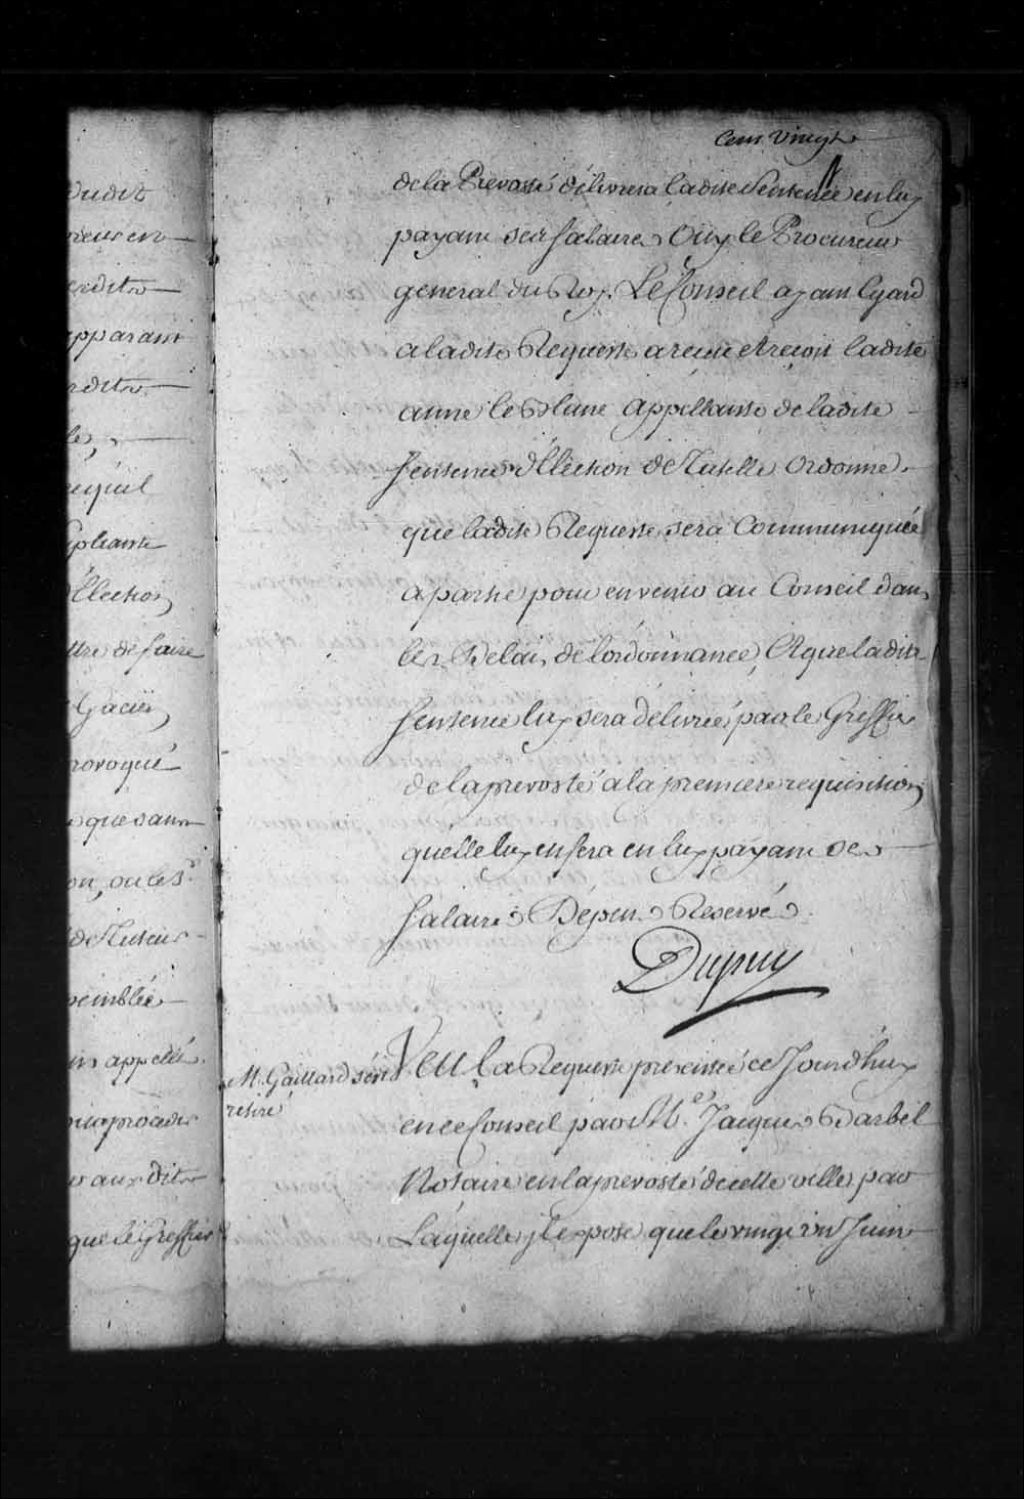 Cent Vingt
de la Prevosté délivrera ladite Sentence en luy
payant ses salaires Ouy le Procureur
general du Roy. Le Conseil ayant Egard
a ladite Requeste a receu et reçoit ladite
anne le appellante de ladite
Sentence d'Ellection de Tutelle Ordonne
que ladite Requeste sera Communiquée
a partie pour en venir au Conseil dans
les Delais de l'ordonnance, Et que ladite
Sentence luy sera délivrée par le Greffier
de la prevosté a la premiere requisition
quelle luy en fera en luy payant ses
salaires Dépens Reservés
Dupuy
M. Gaillard s'est
retiré
Veu la Requeste presentée ce Jourd'huy
en ce Conseil par Me. Jacques Barbel
Notaire en la prevosté de cette ville par
Laquelle il expose que le vingt un Juin
dudit
apparant
Ellection
ttre de faire
Gacien
rovoqué
que sans
on, ou les
de Tuteur
semblée
ins appellé
aux dits
que le Greffier